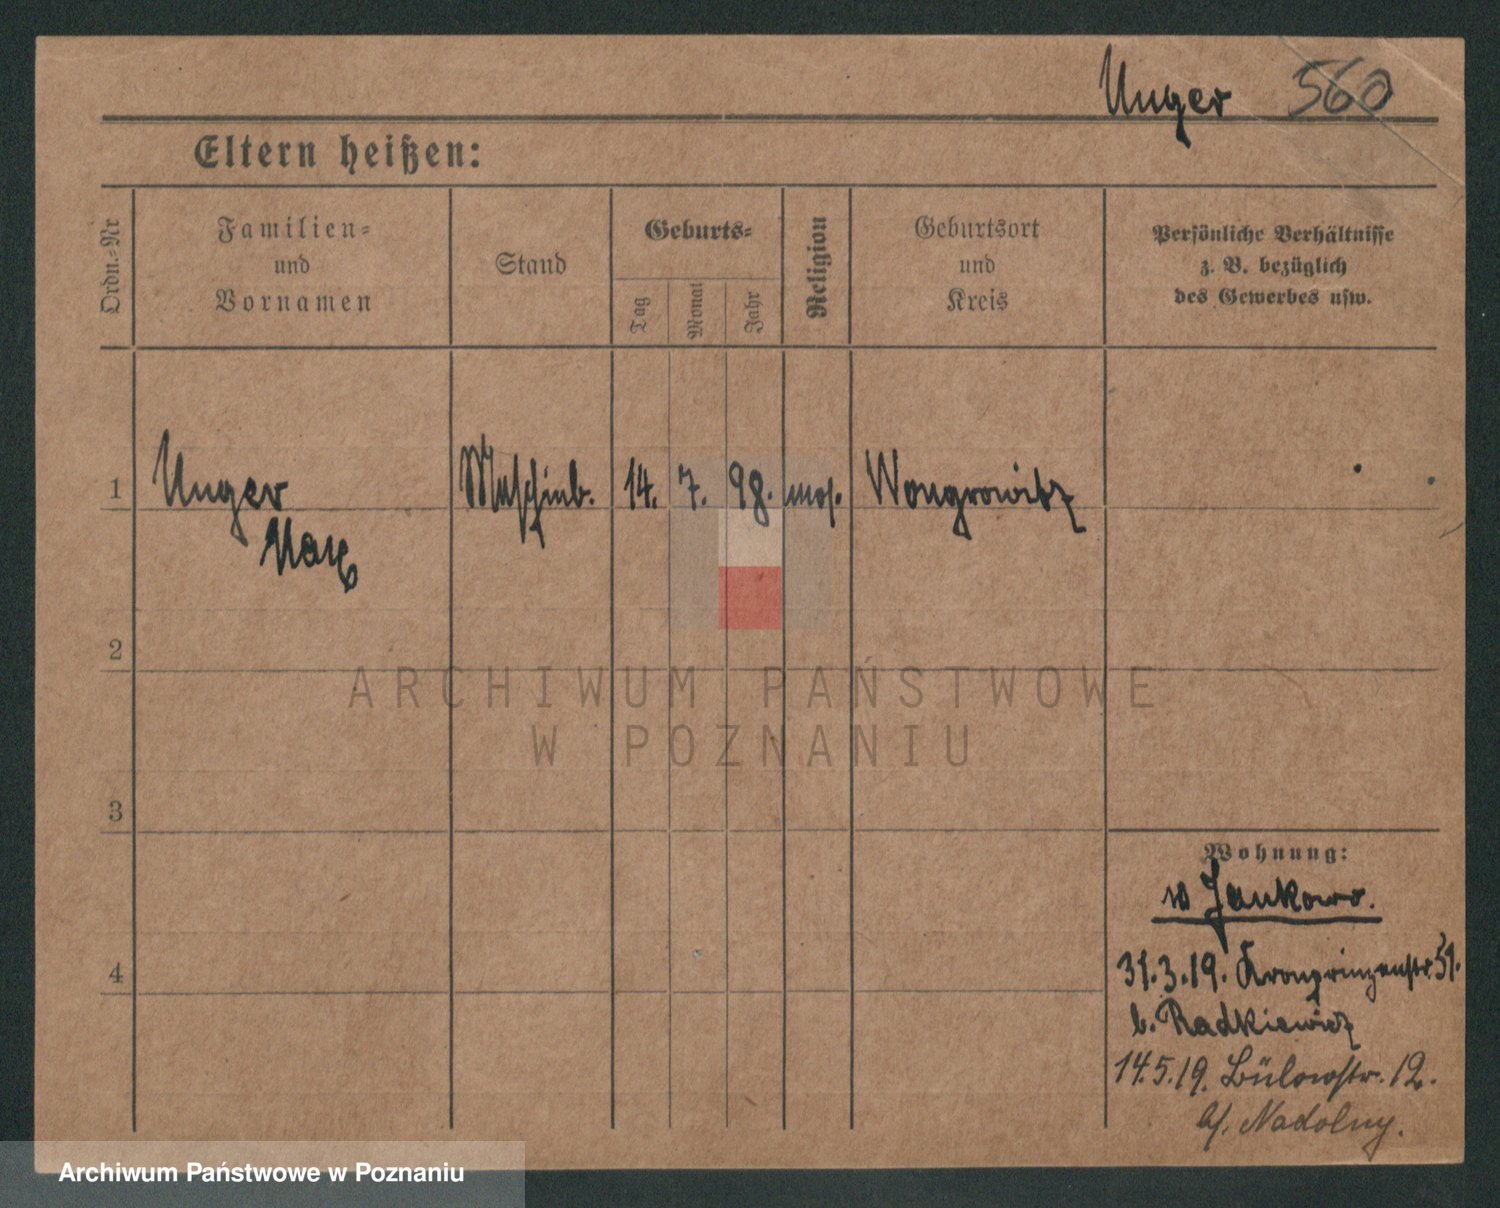 Unger 560
Eltern heißen:
Ordn.-Nr
Familien-
und
Vornamen
Stand
Geburts-
Tag
Monat
Jahr
Religion
Geburtsort
und
Kreis
Persönliche Verhältnisse
z. B. bezüglich
des Gewerbes usw.
1 Unger Maschinb. 14. 7. 98. mos. Wongrowitz
Max
2
ARCHIWUM PAŃSTWOWE
W POZNANIU
3
Wohnung:
Jankowo.
4
31.3.19. Kronprinzenstr. 51.
b. Radkiewicz
14.5.19. Bülowstr. 12.
bf. Nadolny.
Archiwum Państwowe w Poznaniu